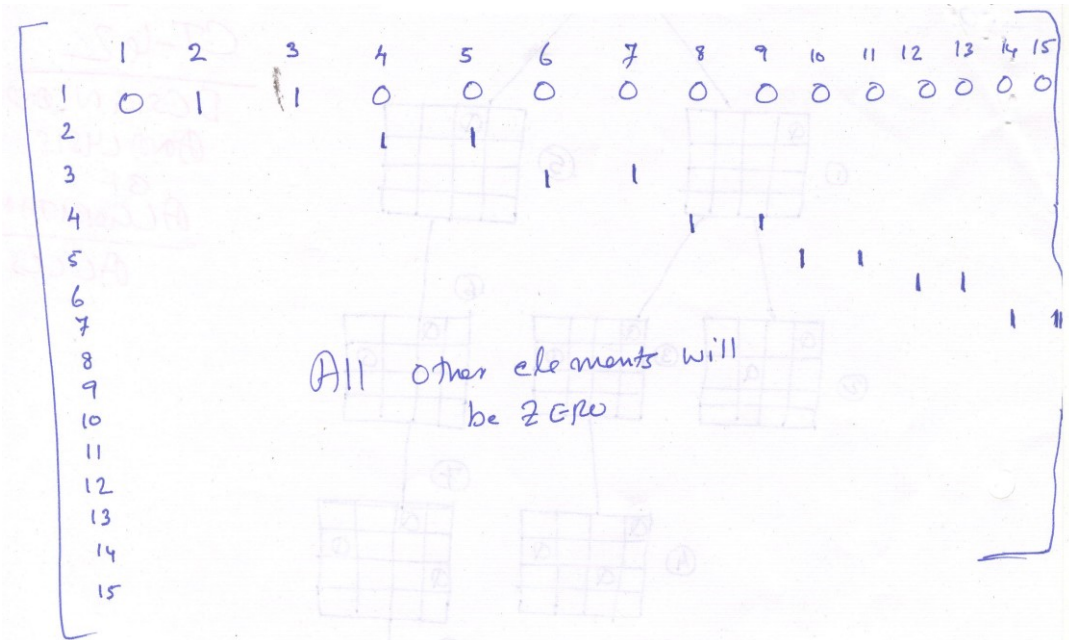 1 2 3 4 5 6 7 8 9 10 11 12 13 14 15
1 0 1 1 0 0 0 0 0 0 0 0 0 0 0 0
2 1 1
3 1 1
4 1 1
5 1 1
6 1 1
7 1 1
8
9
10
11
12
13
14
15
All other elements will
be ZERO